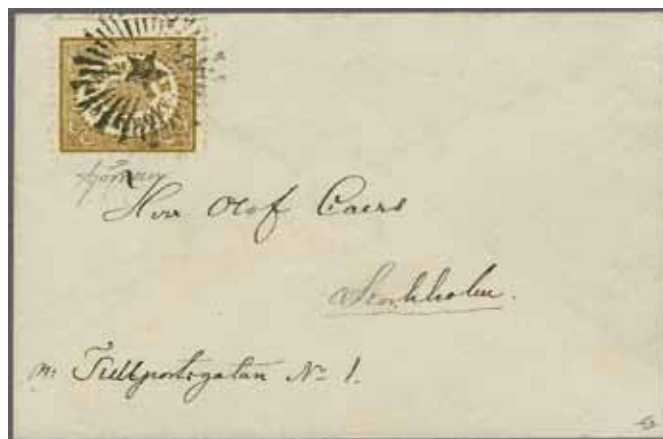 Herr Olof Caers
Stockholm.
Tullportsgatan No 1.